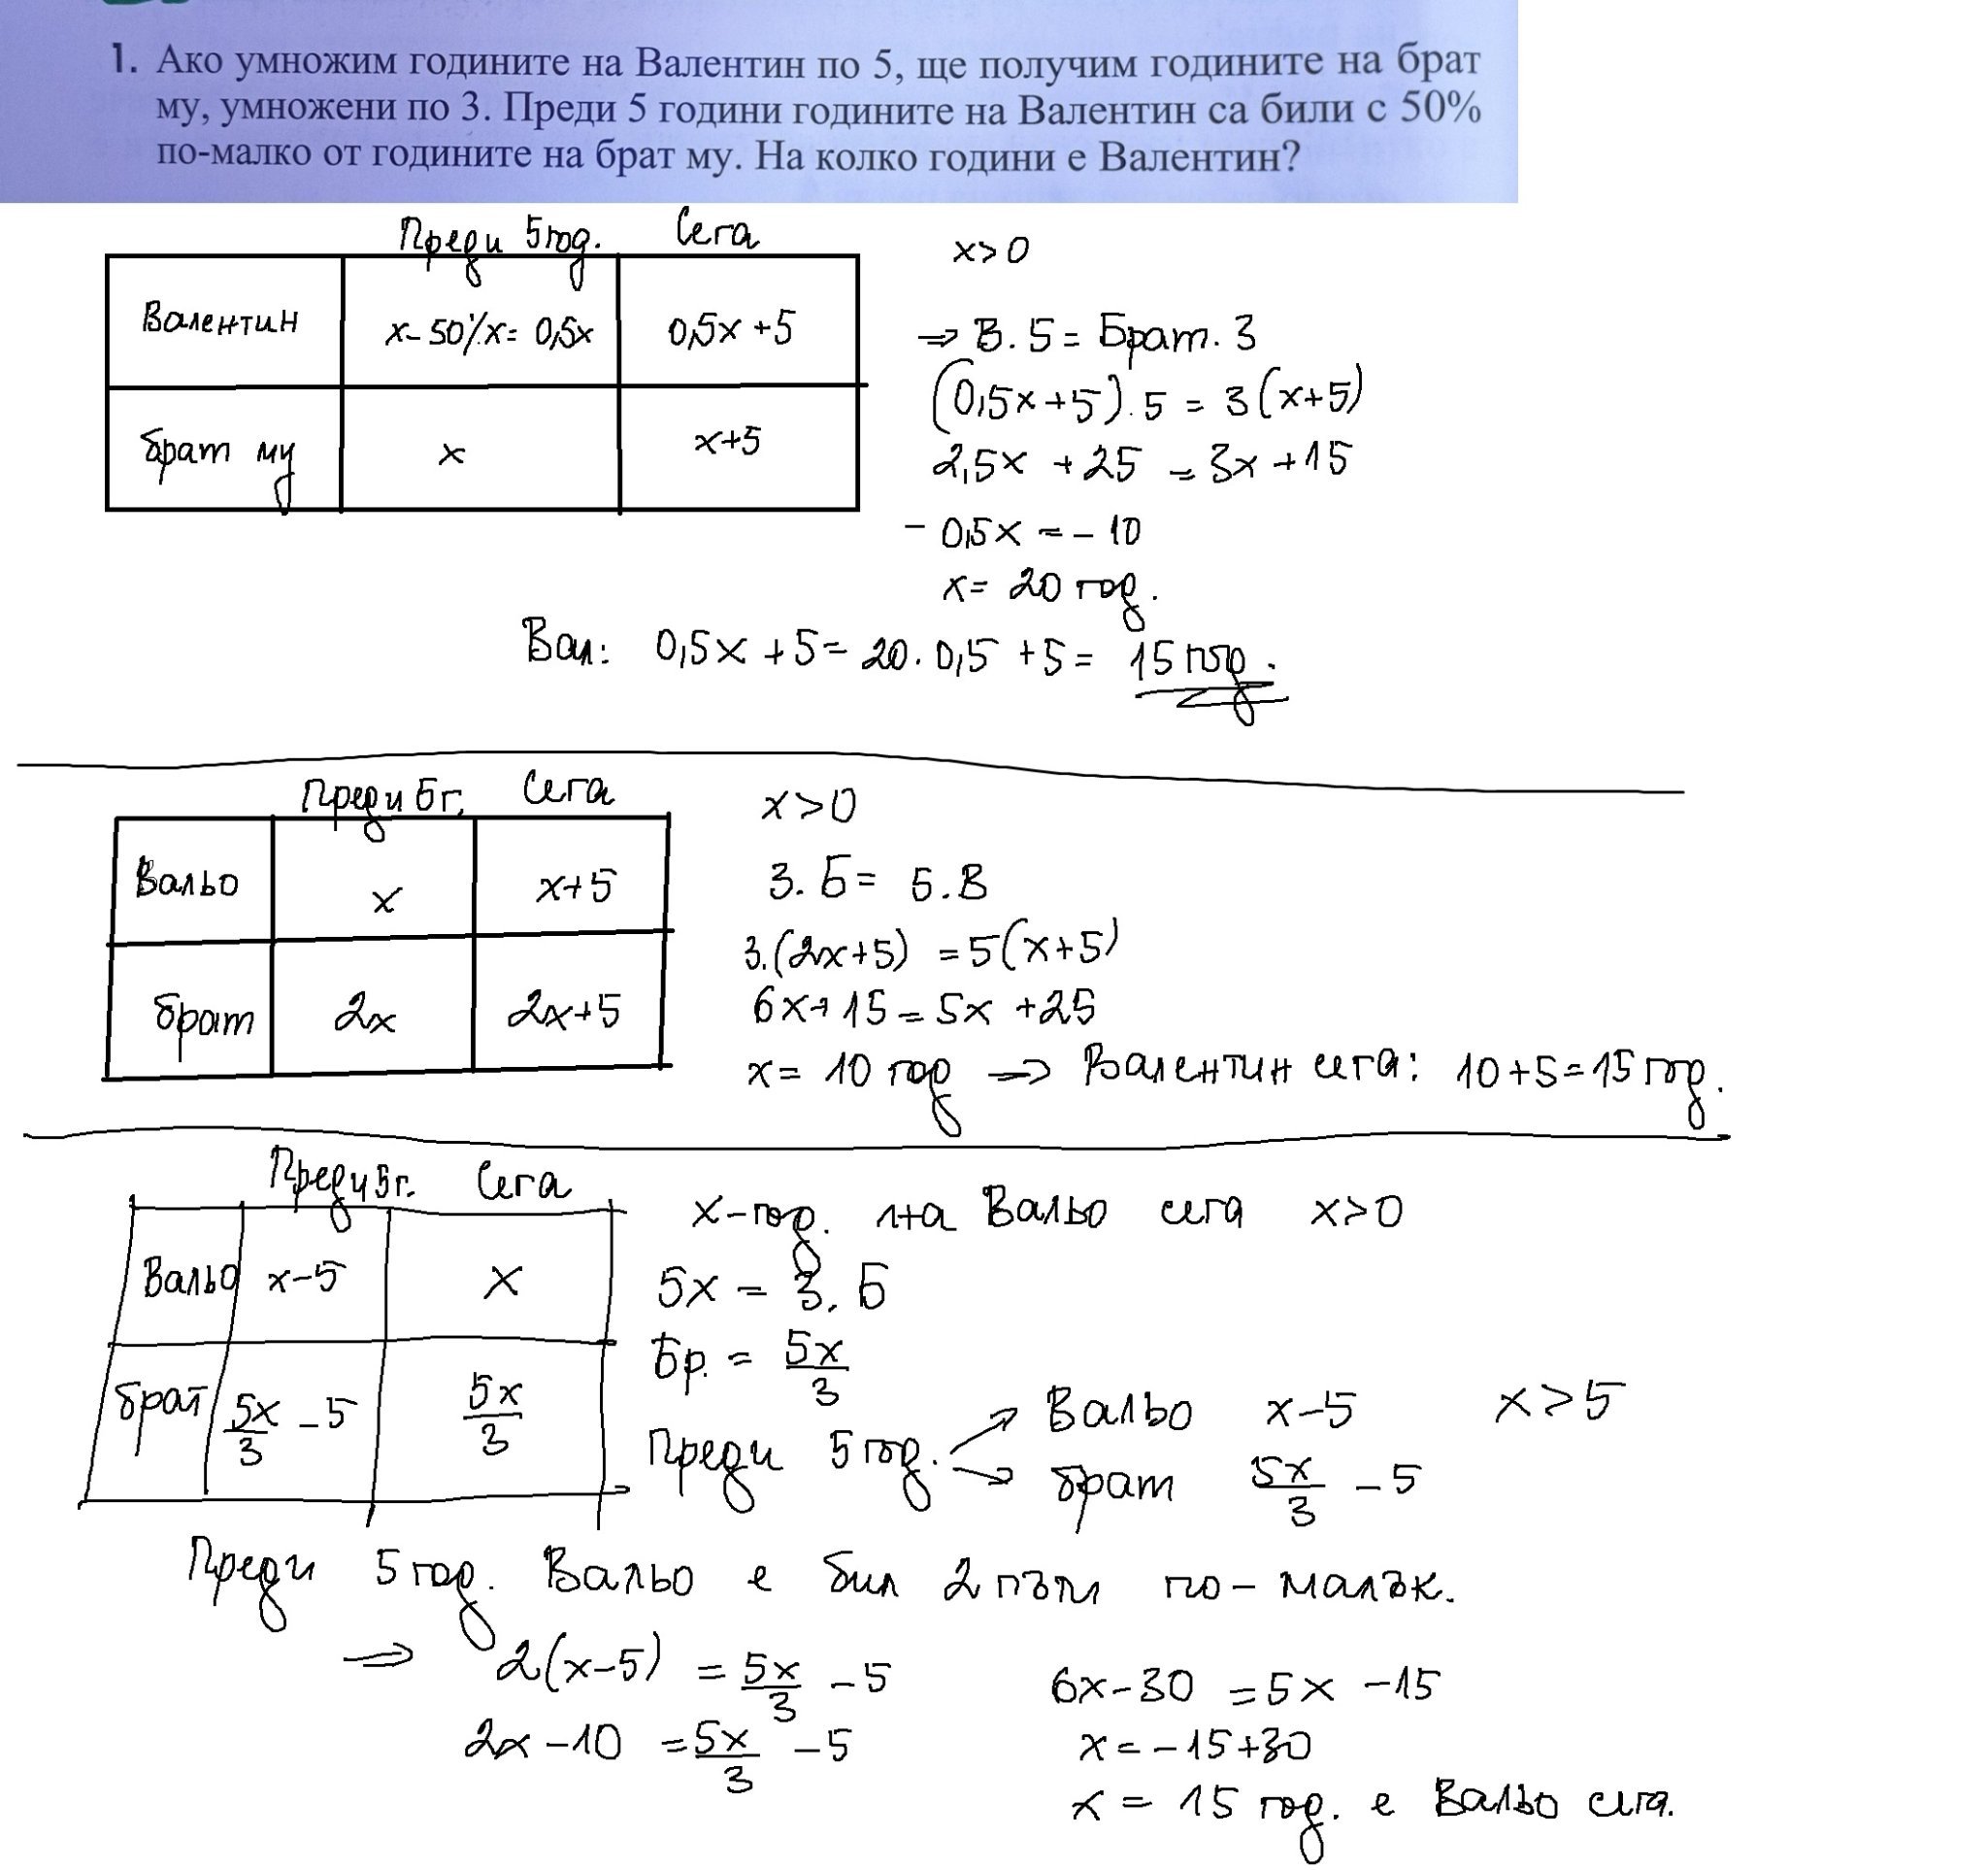 1. Ако умножим годините на Валентин по 5, ще получим годините на брат
му, умножени по 3. Преди 5 години годините на Валентин са били с 50%
по-малко от годините на брат му. На колко години е Валентин?
Преди 5 год. Сега
Валентин x-50%x= 0,5x 0,5x+5
брат му x x+5
x>0
⇒ В.5 = Брат.3
(0,5x+5).5 = 3(x+5)
2,5x+25 = 3x+15
-0,5x = -10
x= 20 год.
Вал: 0,5x+5= 20.0,5+5= 15 год.
Преди 5г. Сега
Вальо x x+5
брат 2x 2x+5
x>0
3.Б= 5.В
3.(2x+5) = 5(x+5)
6x+15 = 5x+25
x= 10 год ⇒ Валентин сега: 10+5=15 год.
Преди 5г. Сега
Вальо x-5 x
брат 5x/3 -5 5x/3
x-год. на Вальо сега x>0
5x = 3.Б
Бр. = 5x/3
Преди 5 год. → Вальо x-5 x>5
→ брат 5x/3 -5
Преди 5 год. Вальо е бил 2 пъти по-малък.
⇒ 2(x-5) = 5x/3 -5
2x-10 = 5x/3 -5
6x-30 = 5x-15
x= -15+30
x = 15 год. е Вальо сега.